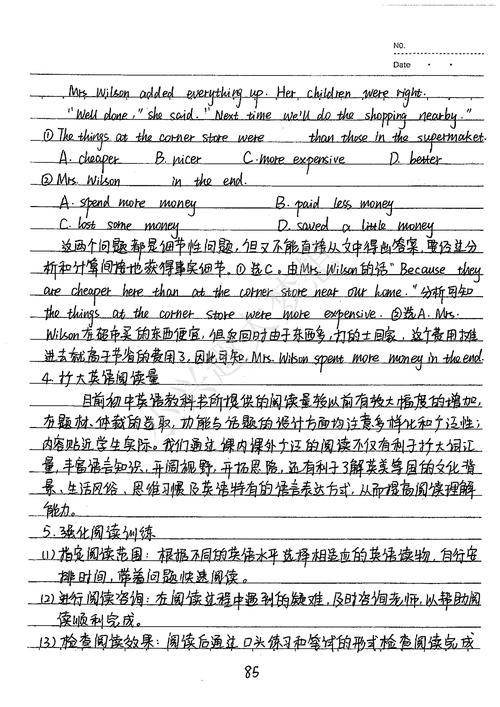 No.
Date
Mrs Wilson added everything up. Her children were right.
"Well done," she said. "Next time we'll do the shopping nearby."
① The things at the corner store were than those in the supermarket.
A. cheaper B. nicer C. more expensive D. better
② Mrs. Wilson in the end.
A. spend more money B. paid less money
C. lost some money D. saved a little money
这两个问题都是细节性问题,但又不能直接从文中得出答案,要仔细分
析和计算间接地获得事实细节。①选C。由Mrs. Wilson的话"Because they
are cheaper here than at the corner store near our home."分析可知
the things at the corner store were more expensive. ②选A. Mrs.
Wilson在超市买的东西便宜,但返回时由于东西多,打的士回家,这个费用加
进去就高于节省的费用了,因此可知,Mrs. Wilson spent more money in the end.
4. 扩大英语阅读量
目前初中英语教科书所提供的阅读量较以前有较大幅度的增加,
在题材、体裁的选取,功能与话题的设计方面均注意多样化和广泛性;
内容贴近学生实际。我们通过课内课外广泛的阅读不仅有利于扩大词汇
量,丰富语言知识,开阔视野,开拓思路,还有利于了解英美等国的文化背
景、生活风俗、思维习惯及英语特有的语言表达方式,从而提高阅读理解
能力。
5. 强化阅读训练
(1) 指定阅读范围:根据不同的英语水平选择相适应的英语读物,自行安
排时间,带着问题快速阅读。
(2) 进行阅读咨询:在阅读过程中遇到的疑难,及时咨询老师,以帮助阅
读顺利完成。
(3) 检查阅读效果:阅读后通过口头练习和笔试的形式检查阅读完成
85